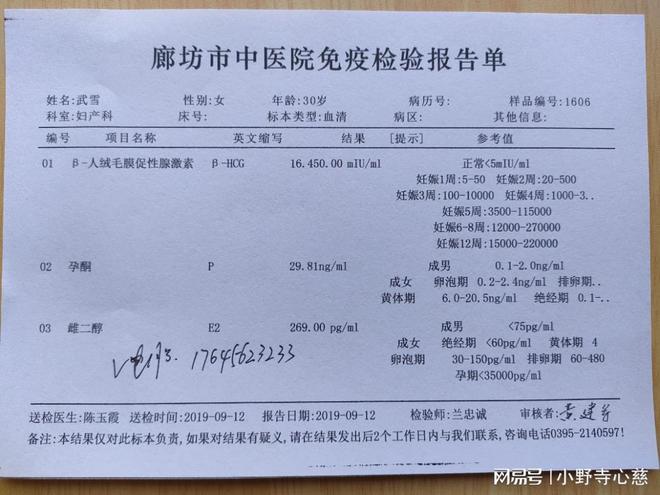 廊坊市中医院免疫检验报告单
姓名:武雪 性别:女 年龄:30岁 病历号: 样品编号:1606
科室:妇产科 床号: 标本类型:血清 病区: 其他信息:
编号 项目名称 英文缩写 结果 [提示] 参考值
01 β-人绒毛膜促性腺激素 β-HCG 16.450.00 mIU/ml 正常<5mIU/ml
妊娠1周:5-50 妊娠2周:20-500
妊娠3周:100-10000 妊娠4周:1000-3..
妊娠5周:3500-115000
妊娠6-8周:12000-270000
妊娠12周:15000-220000
02 孕酮 P 29.81ng/ml 成男 0.1-2.0ng/ml
成女 卵泡期 0.2-2.4ng/ml 排卵期..
黄体期 6.0-20.5ng/ml 绝经期 0.1-..
03 雌二醇 E2 269.00 pg/ml 成男 <75pg/ml
成女 绝经期 <60pg/ml 黄体期 4
卵泡期 30-150pg/ml 排卵期 60-480
孕期<35000pg/ml
17645623233
送检医生:陈玉霞 送检时间:2019-09-12 报告日期:2019-09-12 检验师:兰忠诚 审核者:
备注:本结果仅对此标本负责,如果对结果有疑义,请在结果发出后2个工作日内与我们联系,咨询电话0395-2140597!
搜狐号@小野寺心慈